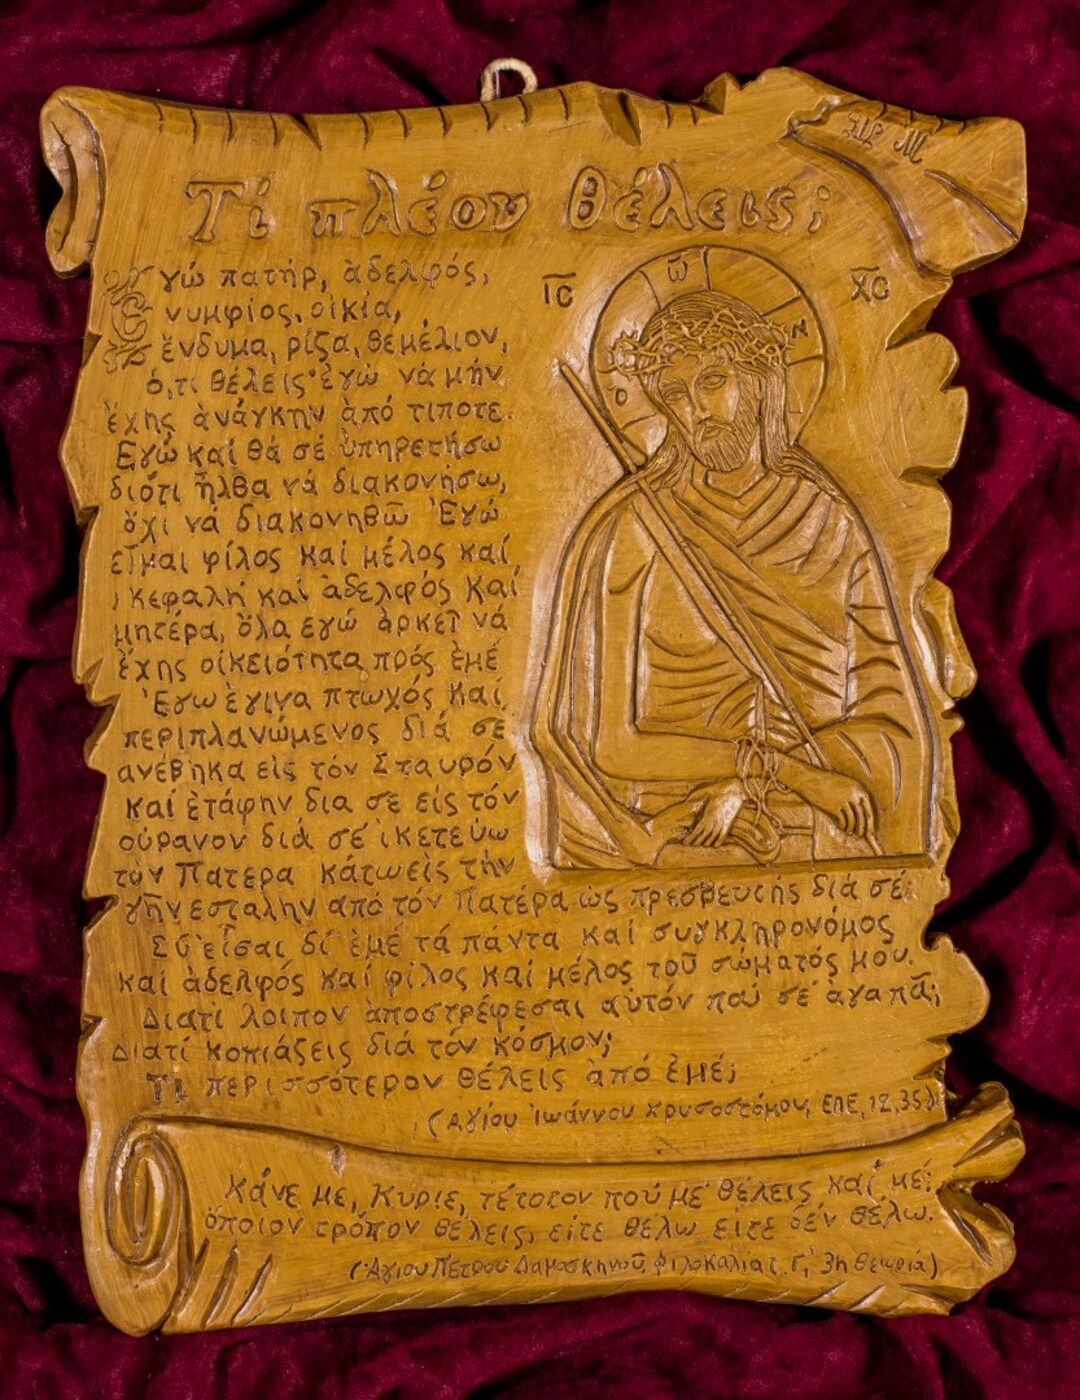 Τί πλέον θέλεις;
ΙC
ΧC
Ὁ
ὬΝ
Ἐγώ πατήρ, ἀδελφός,
νυμφίος, οἰκία,
ἔνδυμα, ρίζα, θεμέλιον,
ὁ,τι θέλεις· ἐγώ νά μήν
ἔχης ἀνάγκην ἀπό τιποτε.
Ἐγώ καί θά σέ ὑπηρετήσω
διότι ἦλθα νά διακονήσω,
ὄχι νά διακονηθῶ Ἐγώ
εἶμαι φίλος καί μέλος καί
κεφαλή καί ἀδελφός καί
μητέρα, ὅλα εγώ ἀρκεῖ νά
ἔχης οἰκειότητα πρός ἐμέ
Ἐγω ἐγινα πτωχός καί
περιπλανώμενος διά σε
ανέβηκα εἰς τόν Σταυρόν
καί ἐτάφην δια σε εἰς τόν
οὐρανον διά σέ ἱκετεύω
τόν Πατερα κάτω εἰς τήν
γῆν εσταλην από τόν Πατέρα ὡς πρεσβευτής διά σέ.
Σύ εἶσαι δι' ἐμέ τά πάντα καί συγκληρονόμος
καί ἀδελφός καί φίλος καί μέλος τοῦ σώματός μου.
Διατί λοιπον ἀποστρέφεσαι αὐτόν πού σέ ἀγαπᾶ;
Διατί κοπιάζεις διά τόν κόσμον;
Τί περισσότερον θέλεις ἀπό ἐμέ;
(Αγίου Ἰωάννου Χρυσοστόμου, ΕΠΕ, 12,35
Κάνε με, Κυριε, τέτοιον πού με θέλεις καί μέ
ὅποιον τρόπον θέλεις, εἴτε θέλω ειτε δέν θέλω.
(Ἁγιου Πετρου Δαμασκηνοῦ, Φιλοκαλία τ. Γ, 3η θεωρία)